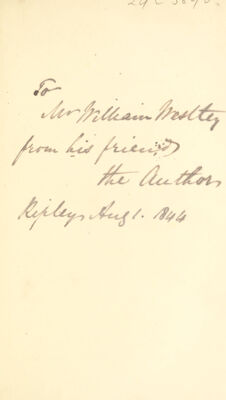 To
Mr William Westley
from his friend
the Author
Ripley Aug 1. 1844